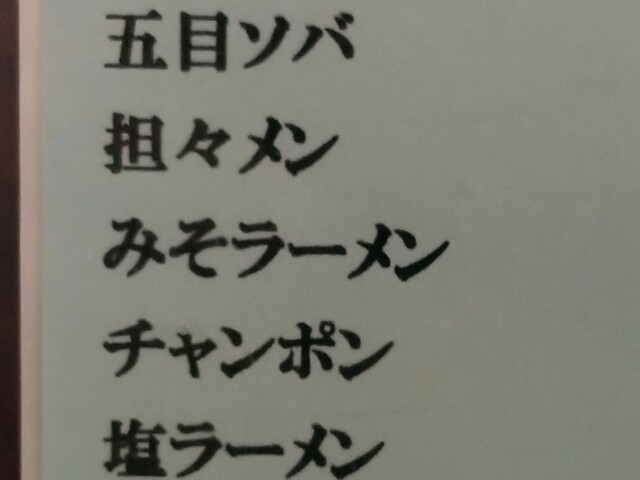 五目ソバ
担々メン
みそラーメン
チャンポン
塩ラーメン